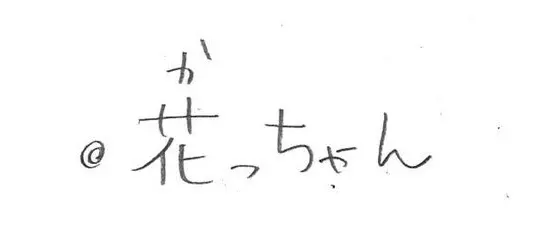 か
◎花っちゃん